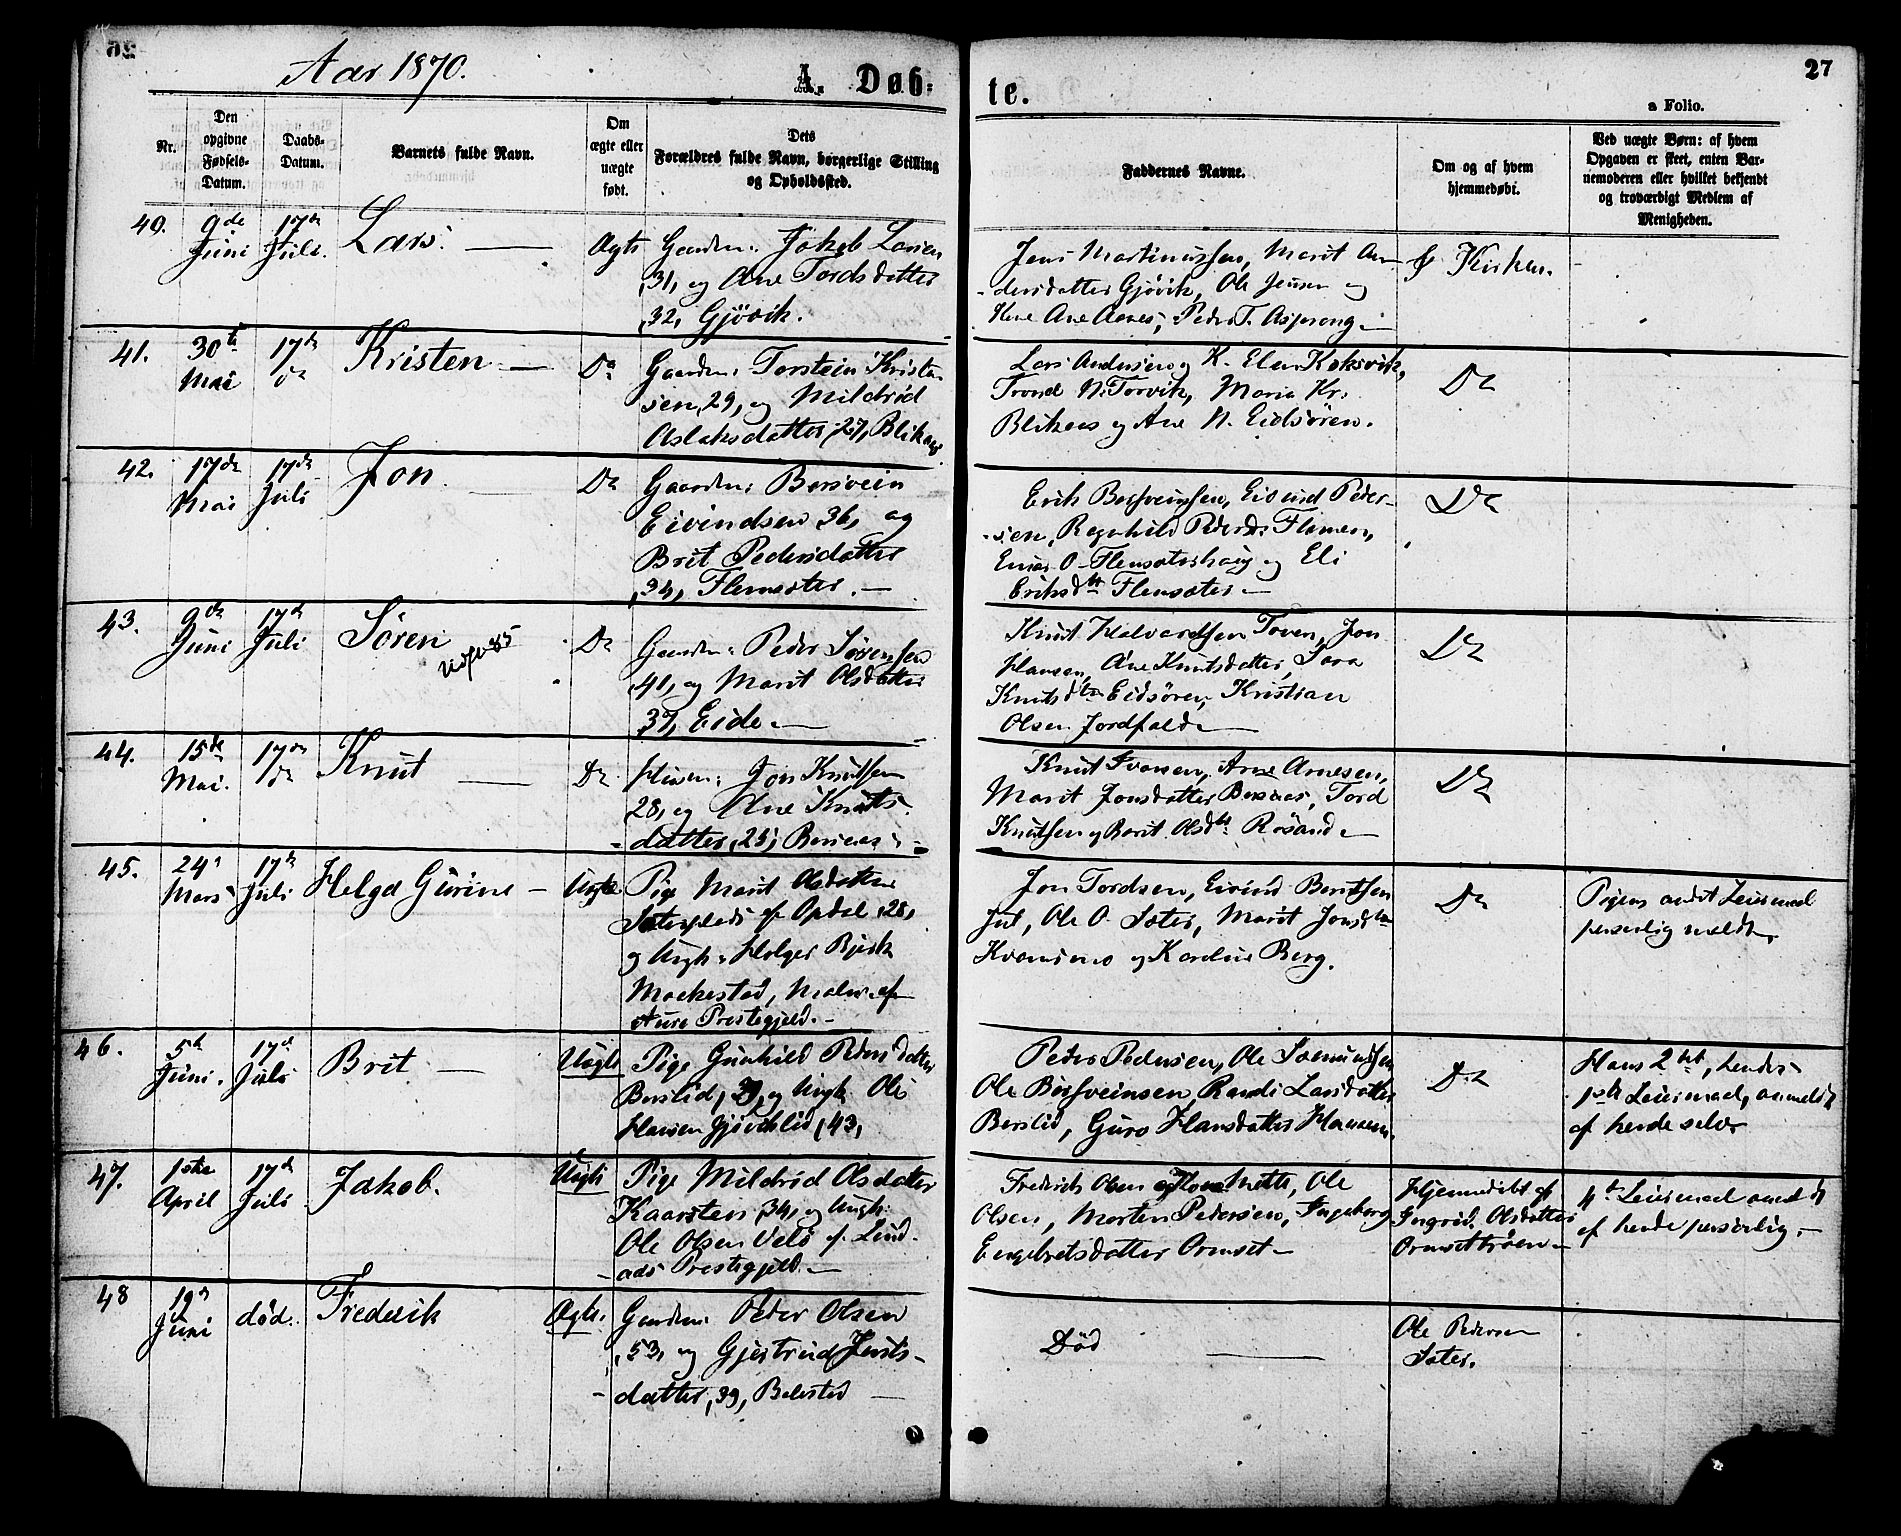 Aar 1870.
A. Døb-
te.
27
a Folio.
Nr.
Den
opgivne
Fødsels-
Datum.
Daabs-
Datum.
Barnets fulde Navn.
Om
ægte eller
uægte
født.
Dets
Forældres fulde Navn, borgerlige Stilling
og Opholdssted.
Faddernes Navne.
Om og af hvem
hjemmedøbt.
Ved uægte Børn: af hvem
Opgaven er skeet, enten Bar-
nemoderen eller hvilket bekjendt
og troværdigt Medlem af
Menigheden.
40. 9de Juni 17de Juli. Lars. Ægte
Gaardm: Jakob Larsen
,31, og Ane Tordsdatter
,32, Gjövik.
Jens Martinussen, Marit An-
dersdatter Gjövik, Ole Jensen og
Kone Ane Aanes, Peder T. Asprong
I Kirken.
41. 30te Mai 17de do Kristen Do
Gaardm: Torstein Kristen
sen, 29, og Mildrid
Aslaksdatter, 27, Blikaas
Lars Andersen og K. Elen Koksvik,
Trond N. Torvik, Maria Kr.
Blikaas og Ane N. Eidsören.
Do
42. 17de Mai 17de Juli Jon Do
Gaardm: Bersvein
Eivindsen 36, og
Brit Pedersdatter
,34, Flemsæter.
Erik Bersveinsen, Eivind Peder-
sen, Ragnhild Pedersd:
Einar O. Flemsæterhaug og Eli
Eriksdtr Flemsæter
Do
43. 9de Juni 17de Juli Sören Do
Gaardm: Peder Sörensen
,40, og Marit Olsdatter
37, Eide
Knut Halvardsen Torven, Jon
Hansen, Ane Knutsdatter, Sara
Knutsdtr Eidsören, Kristian
Olsen Jordfald
Do
44. 15de Mai. 17de do Knut Do
Husm: Jon Knutsen
28, og Ane Knuts-
datter, 25, Bersaas
Knut Iversen, Arne Arnesen,
Marit Jonsdatter Bersaas, Tord
Knutsen og Berit Olsdtr Rösand
Do
45. 24 Mars 17de Juli Helga Gurine Uægte
Pige Marit Olsdatter
Sæterplads af Opdal, 28,
og Ungk: Holger Bjerk
Mackestad, Maler af
Aure Prestegjeld.
Jon Tordsen, Eivind Berntsen
Jul, Ole O. Sæter, Marit Jonsdtr
og Karoline Berg.
Do
Pigens andet Leiermaal
personlig meldt.
46. 5te Juni. 17de Juli Brit Uægte
Pige Gunhild Pedersdatter
Berslid, og Ungk Ole
Hansen Gjöviklid, 43,
Peder Pedersen, Ole Sæmundsen
Ole Bersveinsen, Randi Larsdatter
Berslid, Guro Hansdatter
Do
Hans 2det, hendes
1ste Leiermaal, anmeldt
af hende selv
47. 1ste April 17de Juli Jakob. Uægte
Pige Mildrid Olsdatter
Kaarsten, 34, og Ungk:
Ole Olsen Veld af Lind-
aas Prestegjeld.
Frederik Olsen og Kone Mette, Ole
Olsen, Morten Pedersen, Ingeborg
Engebretsdatter Ormset
Hjemmedöbt af
Ingrid Olsdatter
Ormsettröen
4de Leiermaal anmeldt
af hende personlig.
48 19de Juni död. Frederik Ægte.
Gaardm: Peder Olsen
,53, og Gjertrud Jents-
datter, 39, Bolestad
Död
Ole Pedersen
Sæter.